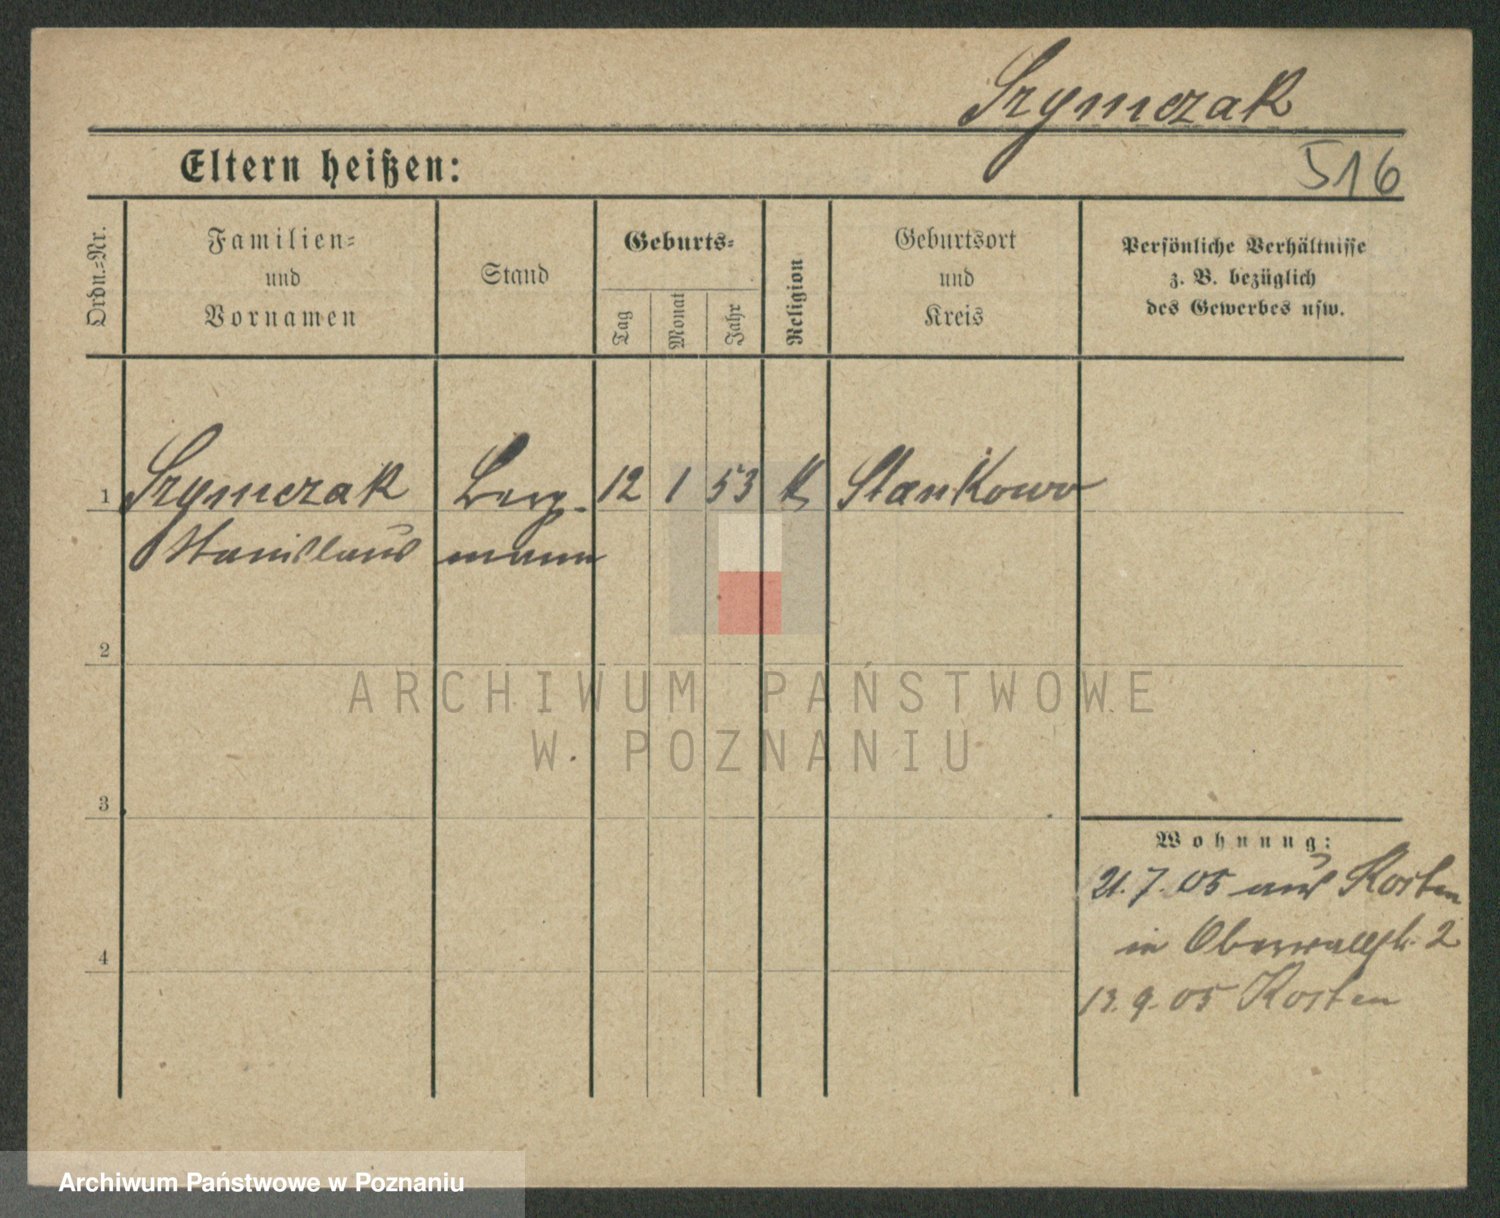 Szymczak
Eltern heißen:
516
Ordn.=Nr.
Familien=
und
Vornamen
Stand
Geburts=
Tag
Monat
Jahr
Religion
Geburtsort
und
Kreis
Persönliche Verhältnisse
z. B. bezüglich
des Gewerbes usw.
1 Szymczak Berg- 12 1 53 k Stankowo
Stanislaus mann
2
ARCHIWUM PAŃSTWOWE
W POZNANIU
3
Wohnung:
21. 7. 05 aus Kosten
in Oberwallstr. 2
4
13. 9. 05 Kosten
Archiwum Państwowe w Poznaniu